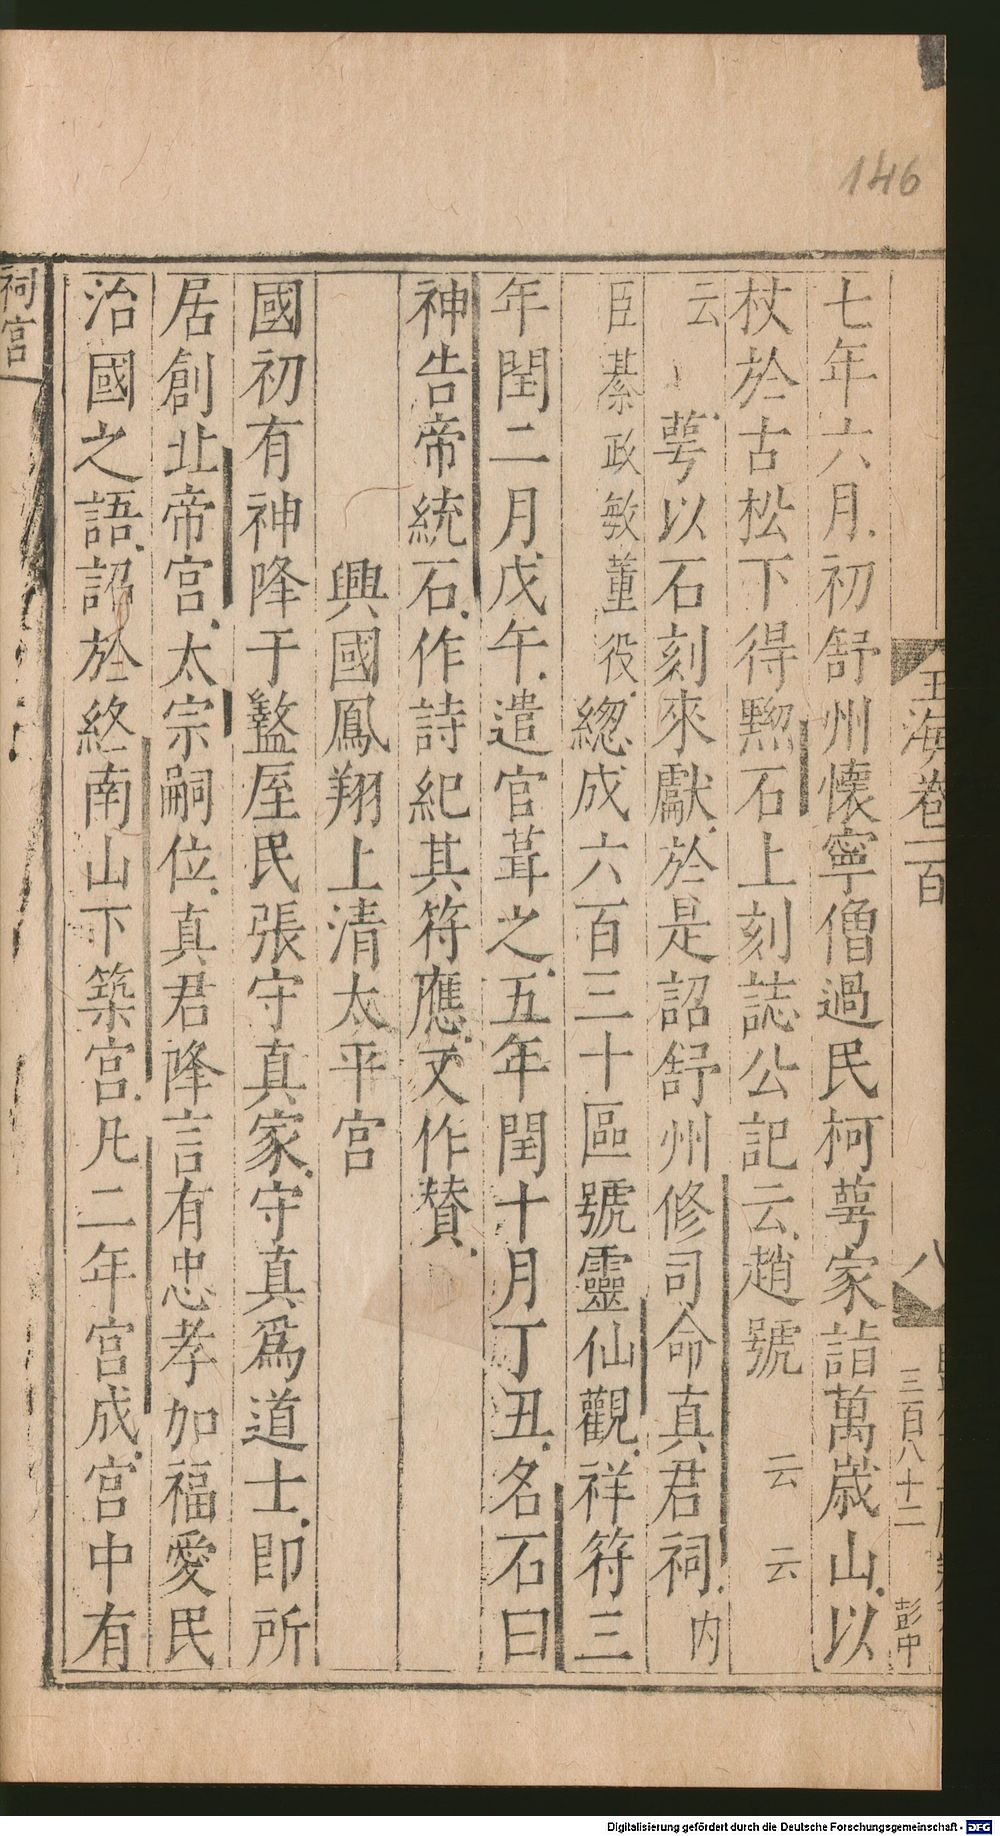 146
玉海卷一百
八
三百八十二
彭中
七年六月初舒州懷寧僧過民柯萼家詣萬歳山以
杖於古松下得黝石上刻誌公記云趙號云云
云萼以石刻來獻於是詔舒州修司命真君祠内
臣綦政敏董役緫成六百三十區號靈仙觀祥符三
年閏二月戊午遣官葺之五年閏十月丁丑名石曰
神告帝統石作詩紀其符應又作贊
興國鳳翔上清太平宮
國初有神降于盩厔民張守真家守真爲道士即所
居創北帝宮太宗嗣位真君降言有忠孝加福愛民
治國之語詔於終南山下築宮凡二年宮成宮中有
祠宮
Digitalisierung gefördert durch die Deutsche Forschungsgemeinschaft - DFG